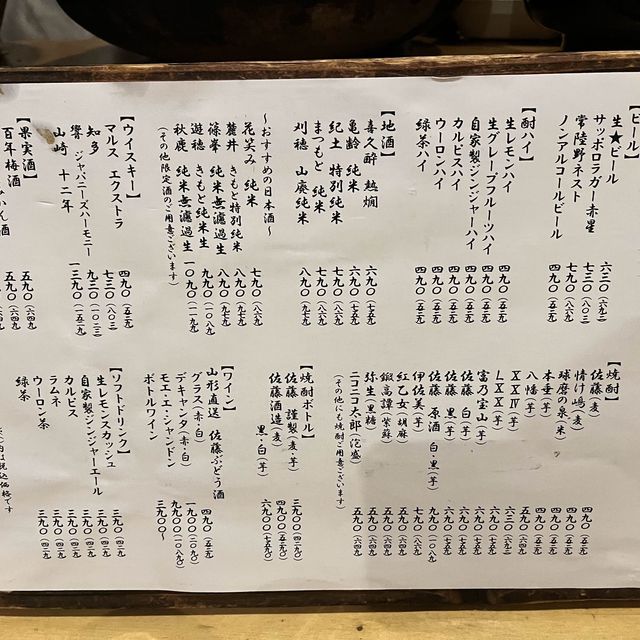 ビール】
生★ビール 六三〇（六九三）
サッポロラガー赤星 七三〇（八〇三）
常陸野ネスト
ノンアルコールビール
【酎ハイ】
生レモンハイ 四九〇（五三九）
生グレープフルーツハイ 四九〇（五三九）
自家製ジンジャーハイ 四九〇（五三九）
カルピスハイ 四九〇（五三九）
ウーロンハイ 四九〇（五三九）
緑茶ハイ 四九〇（五三九）
【地酒】
喜久酔 熱燗 六九〇（七五九）
亀齢 純米 六九〇（七五九）
紀土 特別純米 七九〇（八六九）
まつもと 純米 七九〇（八六九）
刈穂 山廃純米 八九〇（九七九）
～おすすめの日本酒～
花笑み 純米 七九〇（八六九）
麓井 きもと特別純米 八九〇（九七九）
篠峯 純米無濾過生 八九〇（九七九）
遊穂 きもと純米生 九九〇（一〇八九）
秋鹿 純米無濾過生 一〇九〇（一一九九）
（その他限定酒のご用意ございます）
【ウイスキー】
マルス エクストラ 四九〇（五三九）
知多 七三〇（八〇三）
響 ジャパニーズハーモニー 九三〇（一〇二三）
山崎 十二年 一三九〇（一五二九）
【果実酒】
百年梅酒 五九〇（六四九）
みかん酒 五九〇（六四九）
【焼酎】
佐藤（麦） 四九〇（五三九）
情け嶋（麦） 四九〇（五三九）
球磨の泉（米） 四九〇（五三九）
本垂（芋） 四九〇（五三九）
八幡（芋）
ⅩⅩⅣ（芋） 六三〇（六九三）
ＬⅩⅩ（芋） 六九〇（七五九）
富乃宝山（芋） 六九〇（七五九）
佐藤 白（芋） 六九〇（七五九）
佐藤 黒（芋） 六九〇（七五九）
佐藤 原酒 白・黒（芋） 九九〇（一〇八九）
伊佐美（芋） 七九〇（八六九）
紅乙女（胡麻）
鍛高譚（紫蘇） 五九〇（六四九）
弥生（黒糖） 五九〇（六四九）
ニコニコ太郎（泡盛） 五九〇（六四九）
（その他にも焼酎ご用意ございます）
【焼酎ボトル】
佐藤 謹製（麦・芋） 三九〇〇（四二九〇）
佐藤酒造（麦） 四九〇〇（五三九〇）
黒・白（芋） 六九〇〇（七五九〇）
【ワイン】
山形直送 佐藤ぶどう酒
グラス（赤・白） 四九〇（五三九）
デキャンタ（赤・白） 一九〇〇（二〇九〇）
モエ・エ・シャンドン 九九〇〇（一〇八九〇）
ボトルワイン 三九〇〇～
【ソフトドリンク】
生レモンスカッシュ 三九〇（四二九）
自家製ジンジャーエール 三九〇（四二九）
カルピス 三九〇（四二九）
ラムネ 三九〇（四二九）
ウーロン茶 三九〇（四二九）
緑茶 三九〇（四二九）
内は税込価格です